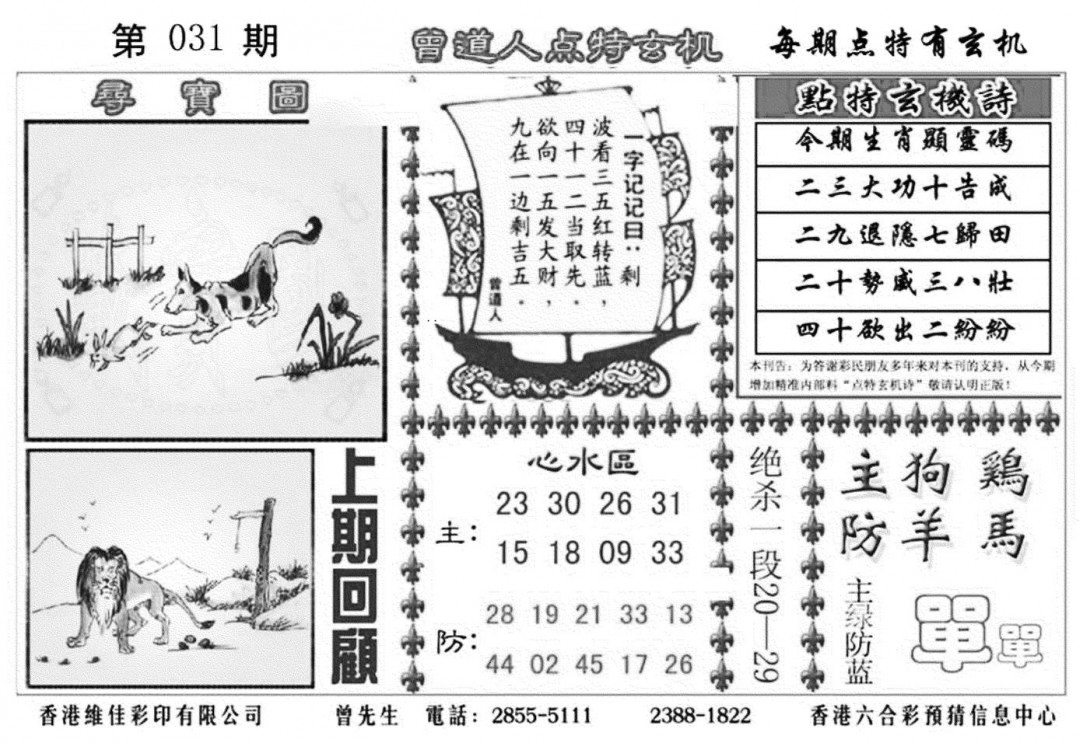 第 031 期
曾道人点特玄机
每期点特有玄机
尋寶圖
一字记记曰：剩
波看三五红转蓝，
四十一二当取先。
欲向一五发大财，
九在一边剩吉五。
曾道人
點特玄機詩
今期生肖顯靈碼
二三大功十告成
二九退隱七歸田
二十勢威三八壯
四十欲出二紛紛
本刊告：为答谢彩民朋友多年来对本刊的支持，从今期
增加精准内部料“点特玄机诗”敬请认明正版！
上期回顧
心水區
主：
23 30 26 31
15 18 09 33
防：
28 19 21 33 13
44 02 45 17 26
绝杀一段20—29
主狗鷄
防羊馬
主绿防蓝
單單
香港維佳彩印有限公司
曾先生 電話：2855-5111 2388-1822
香港六合彩预猜信息中心